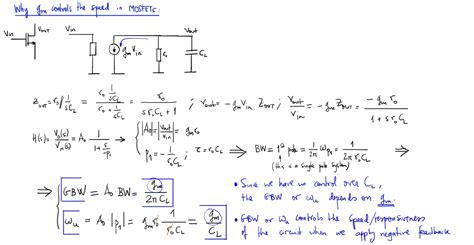 Why gm controls the speed in MOSFETs:
Vin Vout Vin gm Vin ro Vout CL
Zout = ro // 1/sCL = (ro 1/sCL) / (ro + 1/sCL) = ro / (sroCL + 1) ; Vout = -gm Vin Zout ; Vout/Vin = -gm Zout = -gm ro / (1 + s ro CL)
H(s) = Vo(s)/Vin(s) = Ao 1/(1 + s/p1) → { |Ao| = |Vout/Vin| = gm ro
p1 = -1/(ro CL) ; τ = ro CL ⇒ BW = 1st pole = 1/2π ωp1 = 1/(2π ro CL) ⇒
(this is a single pole system)
⇒ { GBW = Ao · BW = gm / (2π CL)
ωu = Ao |p1| = gm ro 1/(ro CL) = gm / CL
• Since we have no control over CL,
the GBW or ωu depends on gm.
• GBW or ωu controls the speed/responsiveness
of the circuit when we apply negative feedback.